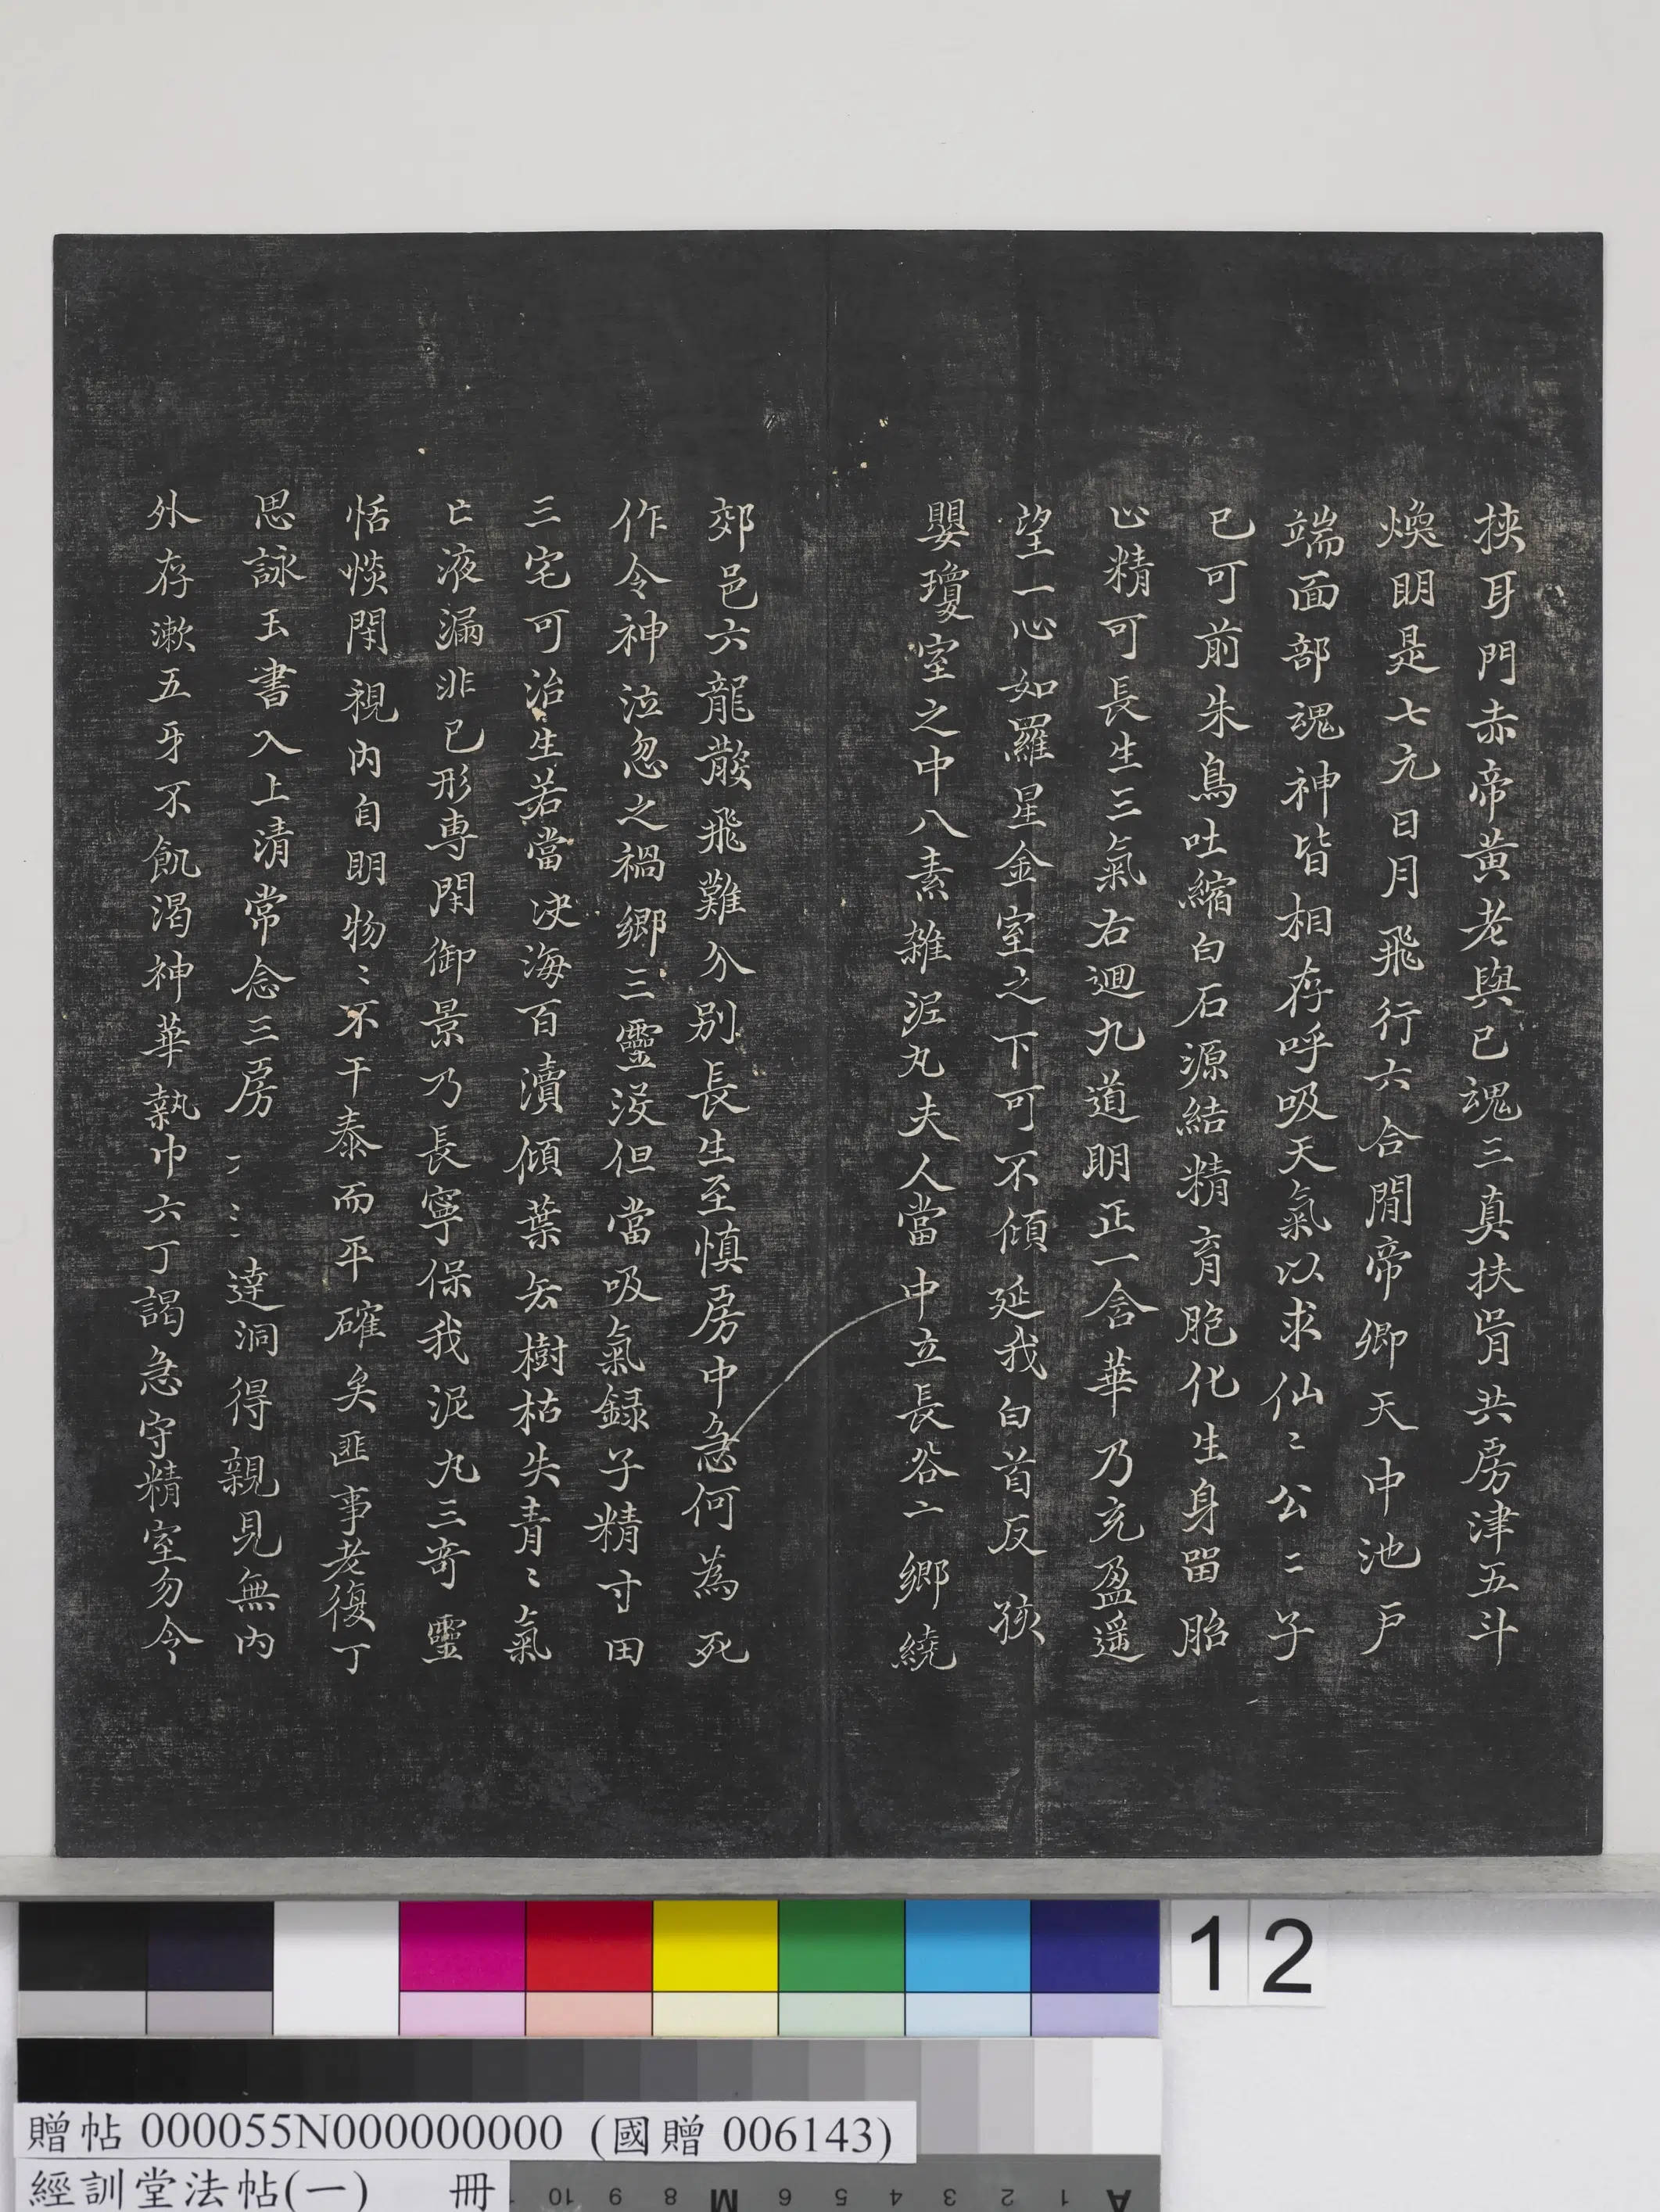 挾耳門赤帝黃老與己魂三真扶胥共房津五斗
煥明是七元日月飛行六合間帝卿天中池戶
端面部魂神皆相存呼吸天氣以求仙〻公〻子
已可前朱鳥吐縮白石源結精育胞化生身留胎
止精可長生三氣右迴九道明正一含華乃充盈遥
望一心如羅星金室之下可不傾延我白首反孩
嬰瓊室之中八素雜泥丸夫人當中立長谷亠鄉繞
郊邑六龍散飛難分別長生至慎房中急何為死
作令神泣忽之禍鄉三靈沒但當吸氣録子精寸田
三宅可治生若當決海百瀆傾葉去樹枯失青〻氣
亡液漏非己形專閑御景乃長寧保我泥丸三奇靈
恬惔閑視內自明物〻不干泰而平確矣匪事老復丁
思詠玉書入上清常念三房 達洞得親見無內
外存漱五牙不飢渴神華執巾六丁謁急守精室勿令
12
贈帖 000055N000000000 (國贈 006143)
經訓堂法帖(一) 冊
10 9 8 M 6 5 4 3 2 1 A